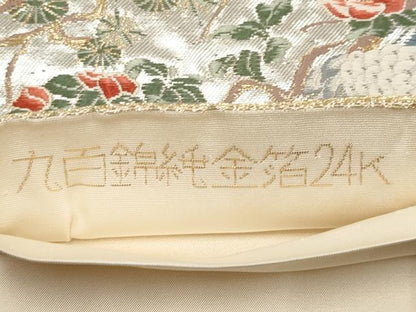 九百錦純金箔24K